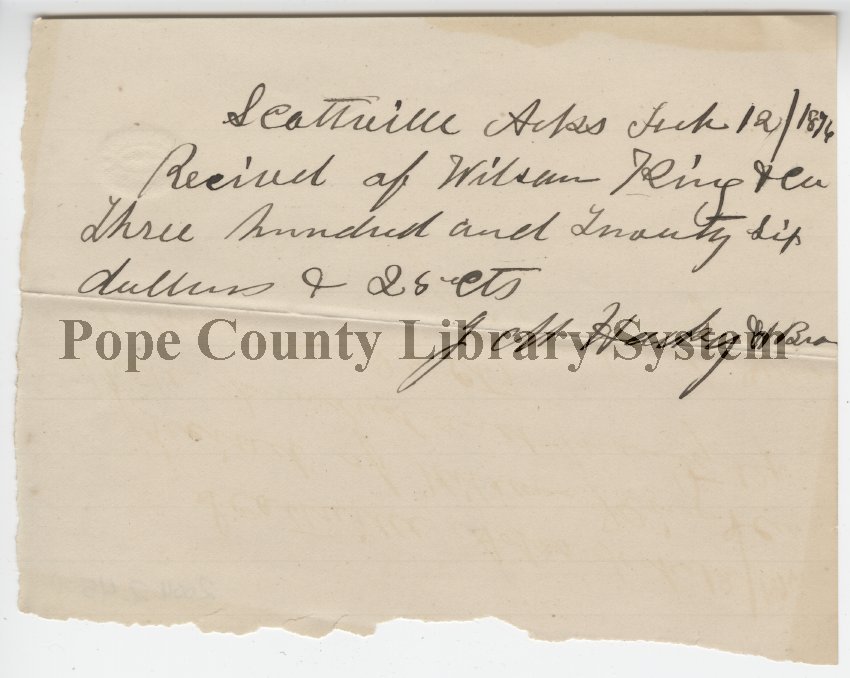 Scottville Arks Feb 12/1876
Recived of Wilson King & Co
Three hundred and Twenty six
dollars & 25 cts
J M Haskey & Bro
Pope County Library System